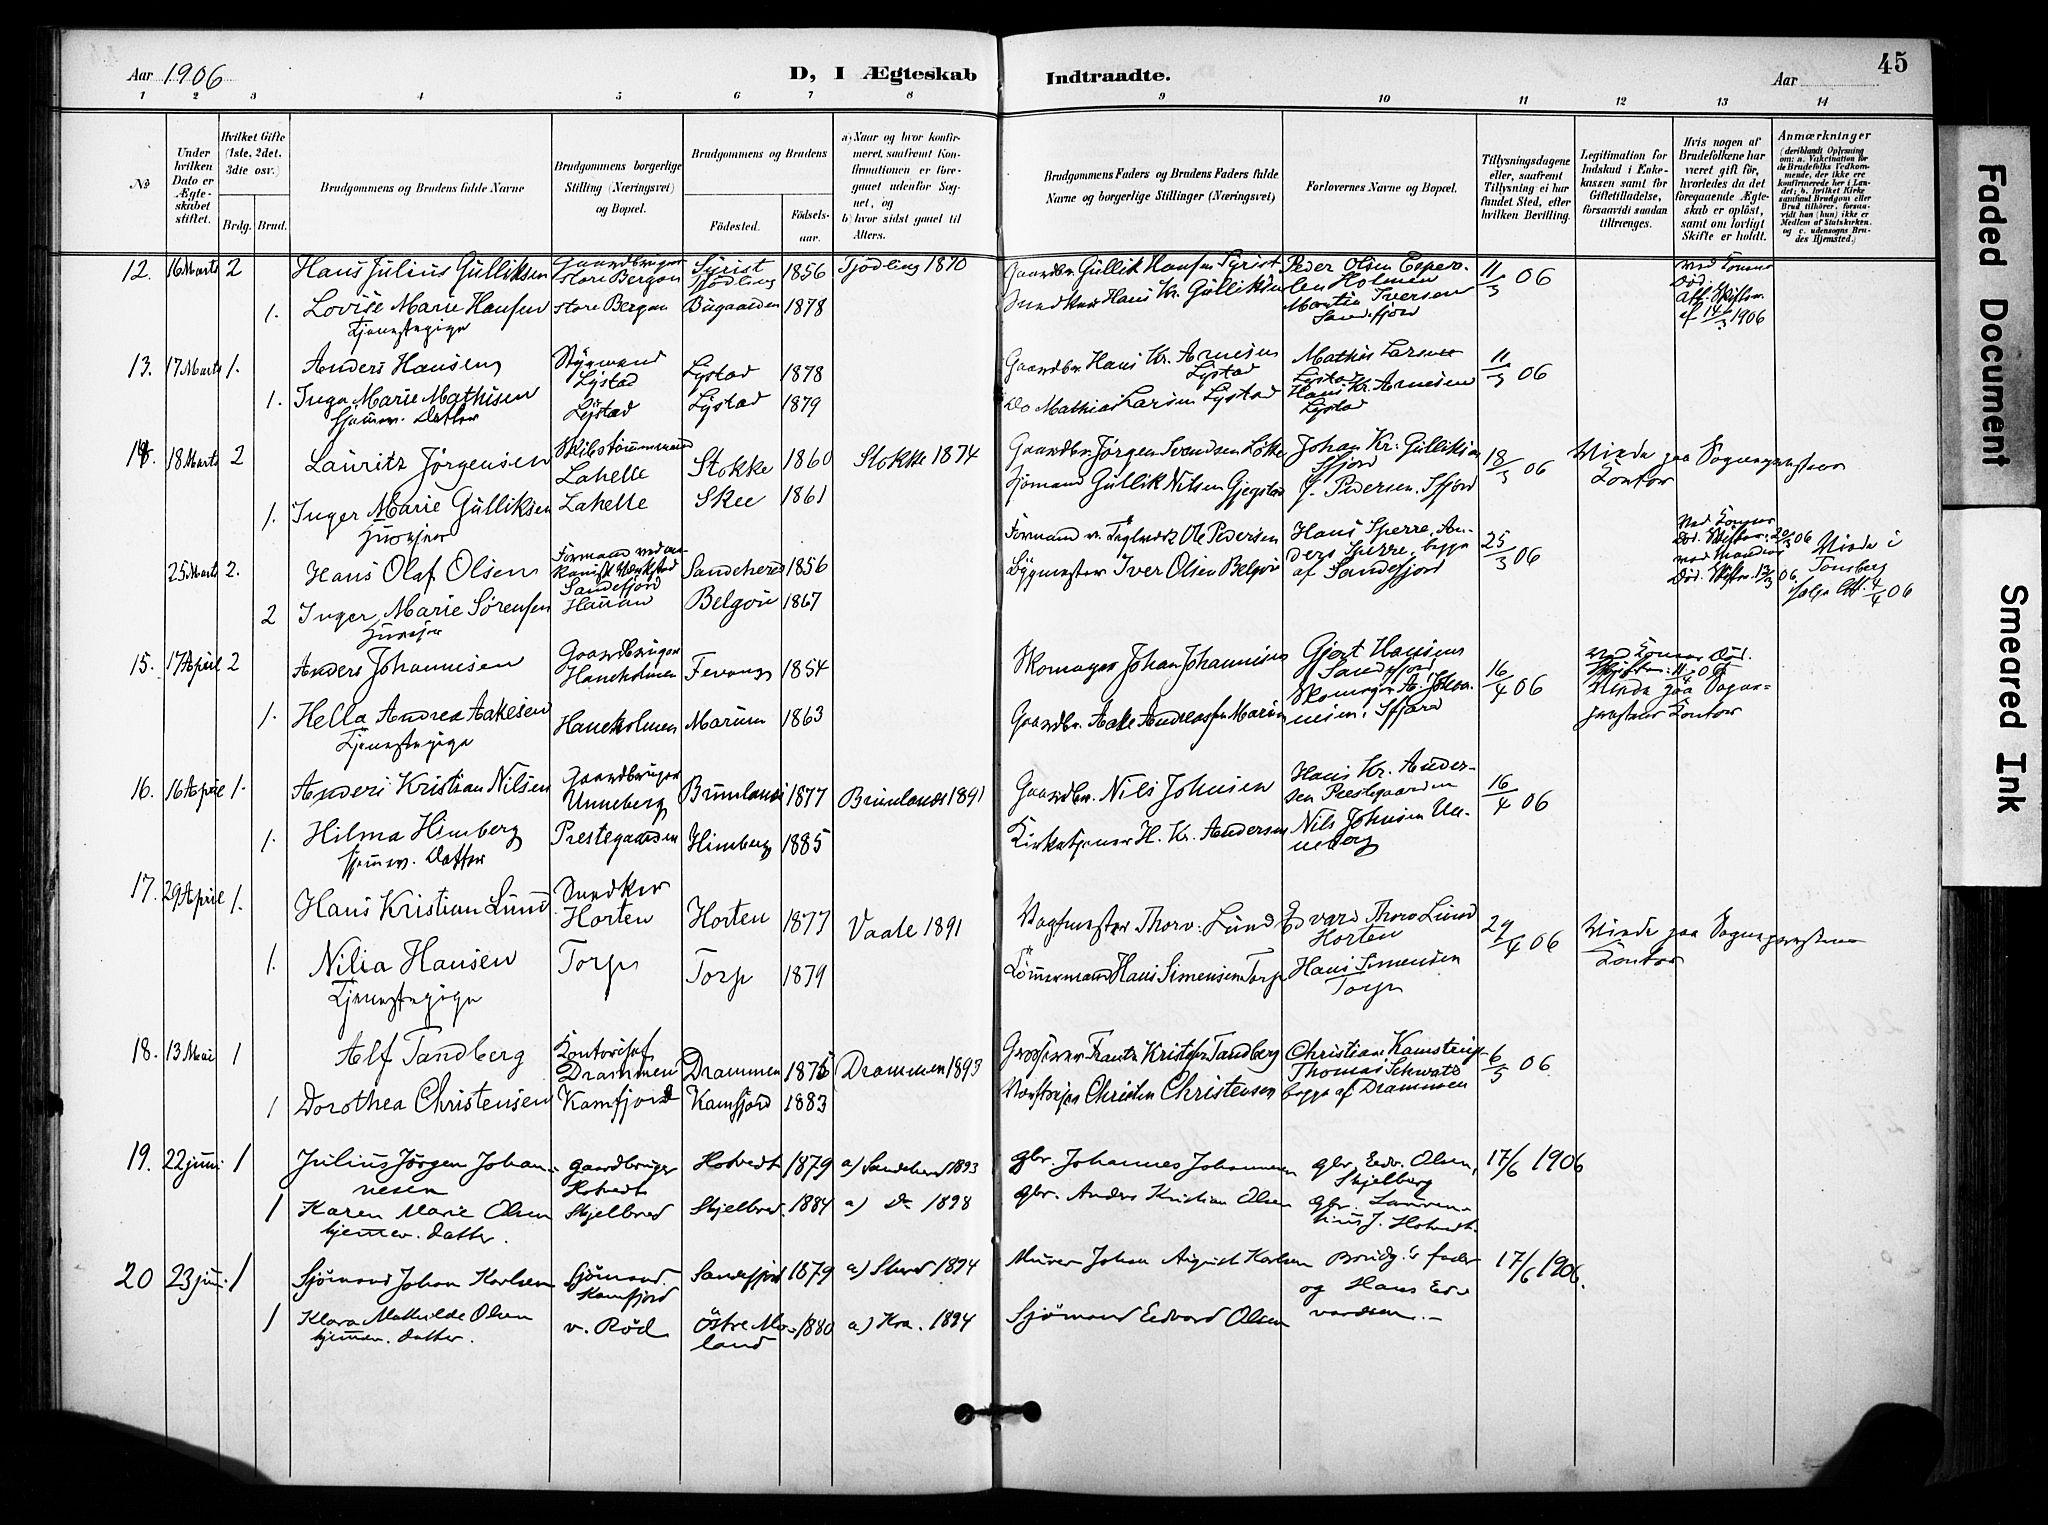 Aar 1906
D, I Ægteskab Indtraadte.
Aar
45
1 2 3 4 5 6 7 8 9 10 11 12 13 14
No
Under hvilken Dato er Ægteskabet stiftet.
Hvilket Gifte (1ste, 2det, 3die osv.)
Brdg. Brud.
Brudgommens og Brudens fulde Navne
Brudgommens borgerlige Stilling (Næringsvei) og Bopæl.
Brudgommens og Brudens
Fødested.
Fødselsaar.
a) Naar og hvor konfirmeret, saafremt Konfirmationen er foregaaet udenfor Sognet, og
b) hvor sidst gaaet til Alters.
Brudgommens Faders og Brudens Faders fulde Navne og borgerlige Stillinger (Næringsvei)
Forlovernes Navne og Bopæl.
Tillysningsdagene eller, saafremt Tillysning ei har fundet Sted, efter hvilken Bevilling.
Legitimation for Indskud i Enkekassen samt for Giftetilladelse, forsaavidt saadan tiltrænges.
Hvis nogen af Brudefolkene har været gift før, hvorledes da det foregaaende Ægteskab er opløst, samt om lovligt Skifte er holdt.
Anmærkninger
12. 16 Marts 2 Hans Julius Gulliksen Gaardbruger store Bergan Syrist Tjødling 1856 Tjødling 1870 Gaardbr. Gullik Hansen Syrist Peder Olsen Holmen 11/3 06
1. Lovise Marie Hansen Tjenestepige store Bergan Bugaarden 1878 Snedker Hans Kr. Gulliksen Martin Iversen Sandefjord
af 14/3 1906
13. 17 Marts 1. Anders Hansen Styrmand Lystad Lystad 1878 Gaardbr. Hans Kr. Arnesen Lystad Mathias Larsen Lystad 11/3 06
1. Inga Marie Mathisen hjemmev. Datter Lystad Lystad 1879 Do Mathias Larsen Lystad Hans Kr. Arnesen Lystad
14. 18 Marts 2 Lauritz Jørgensen Skibstømmermand Lahelle Stokke 1860 Stokke 1874 Gaardbr. Jørgen Svendsen Johan Kr. Gulliksen Sfjord 18/3 06 Viede paa Sogneprestens Kontor
1. Inger Marie Gulliksen Husjer Lahelle Skee 1861 Sjømand Gullik Nilsen Gjegstad Pedersen, Sfjord
25 Marts 2. Hans Olaf Olsen Formand ved mekanisk Værksted Sandefjord Sandeherred 1856 Formand v. Teglværk Ole Pedersen Hans Sperre, Anders Sperre, begge af Sandefjord 25/3 06
2 Inger Marie Sørensen Hauan Belgøn 1867 Bygmester Iver Olsen Belgøn
Viede i Tønsberg ifølge Att. 4/4 06
15. 17 April 2 Anders Johannesen Gaardbruger Haneholmen Fevang 1854 Skomager Johan Johannesen Gjert Hansen Sandefjord 16/4 06 Viede paa Sogneprestens Kontor
1. Hella Andrea Aakesen Tjenestepige Haneholmen Marum 1863 Gaardbr. Aake Andreassen Marum Skomager A. Johannesen, Sfjord
16. 16 April 1. Anders Kristian Nilsen Gaardbruger Unneberg Brunlanes 1877 Brunlanes 1891 Gaardbr. Nils Johnsen Hans Kr. Andersen Prestegaarden 16/4 06
1. Hilma Himberg hjemmev. Datter Prestegaarden Himberg 1885 Kirketjener H. Kr. Andersen Nils Johnsen Unneberg
17. 29 April 1. Hans Kristian Lund Snedker Horten Horten 1877 Vaale 1891 Vagtmester Thorv. Lund Edvard Thorv Lund Horten 29/4 06 Viede paa Sogneprestens Kontor
1. Nilia Hansen Tjenestepige Torp Torp 1879 Tømmermand Hans Simensen Torp Hans Simensen Torp
18. 13 Mai 1 Alf Tandberg Kontorchef Drammen Drammen 1875 Drammen 1893 Grosserer Frantz Kristian Tandberg Christian Kamstrup 6/5 06
1 Dorothea Christensen Kamfjord Kamfjord 1883 Christen Christensen Thomas Schwartz begge af Drammen
19. 22 juni 1 Julius Jørgen Johannesen gaardbruger Hotvedt Hotvedt 1879 a) Sandeherred 1893 gbr. Johannes Johannesen gbr. Edv. Olsen, Skjelberg 17/6 1906
1 Karen Marie Olsen hjemmev. datter. Skjelbred Skjelbred 1884 a) Do 1898 gbr. Anders Kristian Olsen gbr. Laurentius J. Hotvedt.
20 23 juni 1 Sjømand Johan Karlsen Sjømand. Kamfjord Sandefjord 1879 a) 1894 Murer Johan August Karlsen Brudg.'s fader og Hans Edvardsen. 17/6 1906.
1 Klara Mathilde Olsen hjemmev. datter. v. Rød Østre Moland 1880 a) Kra. 1894 Sjømand Edvard Olsen
Faded Document
Smeared Ink